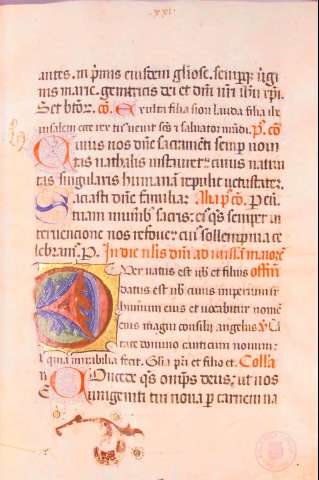 ·XXI·
antes. in p̄mis eiusdem gl̄iose. semperq; ṽgi
nis marie. genitricis dei et dn̄i nr̄i ih̄u xp̄i.
Set bt̄or̄. cō. Exulta filia sion lauda filia ihe
rusalem ecce rex tuus venit sc̄s i salvator mūdi. P. cō
Huius nos dn̄e sacramēti semp novi
tas nathalis instauret: cuius nativi
tas singularis humanā repulit vetustatē.
Saciasti dn̄e familiā Alia p. cō. P. eū.
tuam munib; sacris: ei; q̄s semper in
tervencione nos refove: cui; sollempnia ce
lebram̄. P. In die n̄lis dn̄i ad missā maiorē
Puer natus est nob̄ et filius offim̄
datus est nob̄ cuius imperium su
humerum eius et vocabitur nomē
eius magni consilii angelus ℣ Cā
tate domino canticum novum:
quia mirabilia fecit. Gl̄ia pr̄i et filio et. Collā
Concede q̄s omp̄s deus: ut nos
unigeniti tui nova p carnem na